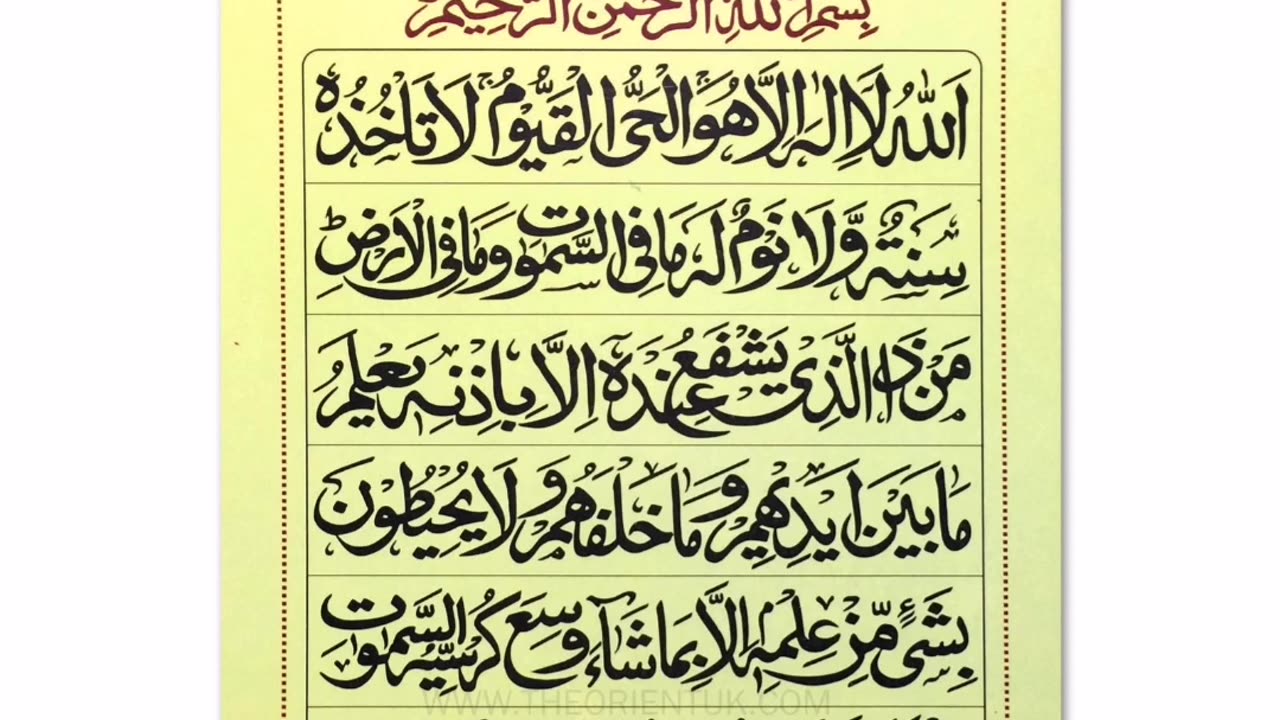 بِسْمِ اللّٰهِ الرَّحْمٰنِ الرَّحِيْمِ
اَللّٰهُ لَاۤ اِلٰهَ اِلَّا هُوَ ۚ اَلْحَيُّ الْقَيُّوْمُ ۚ لَا تَاْخُذُهٗ
سِنَةٌ وَّلَا نَوْمٌ ؕ لَهٗ مَا فِى السَّمٰوٰتِ وَمَا فِى الْاَرْضِ ؕ
مَنْ ذَا الَّذِىْ يَشْفَعُ عِنْدَهٗۤ اِلَّا بِاِذْنِهٖ ؕ يَعْلَمُ
مَا بَيْنَ اَيْدِيْهِمْ وَمَا خَلْفَهُمْ ۚ وَلَا يُحِيْطُوْنَ
بِشَىْءٍ مِّنْ عِلْمِهٖۤ اِلَّا بِمَا شَآءَ ۚ وَسِعَ كُرْسِيُّهُ السَّمٰوٰتِ
WWW.THEORIENTUK.COM